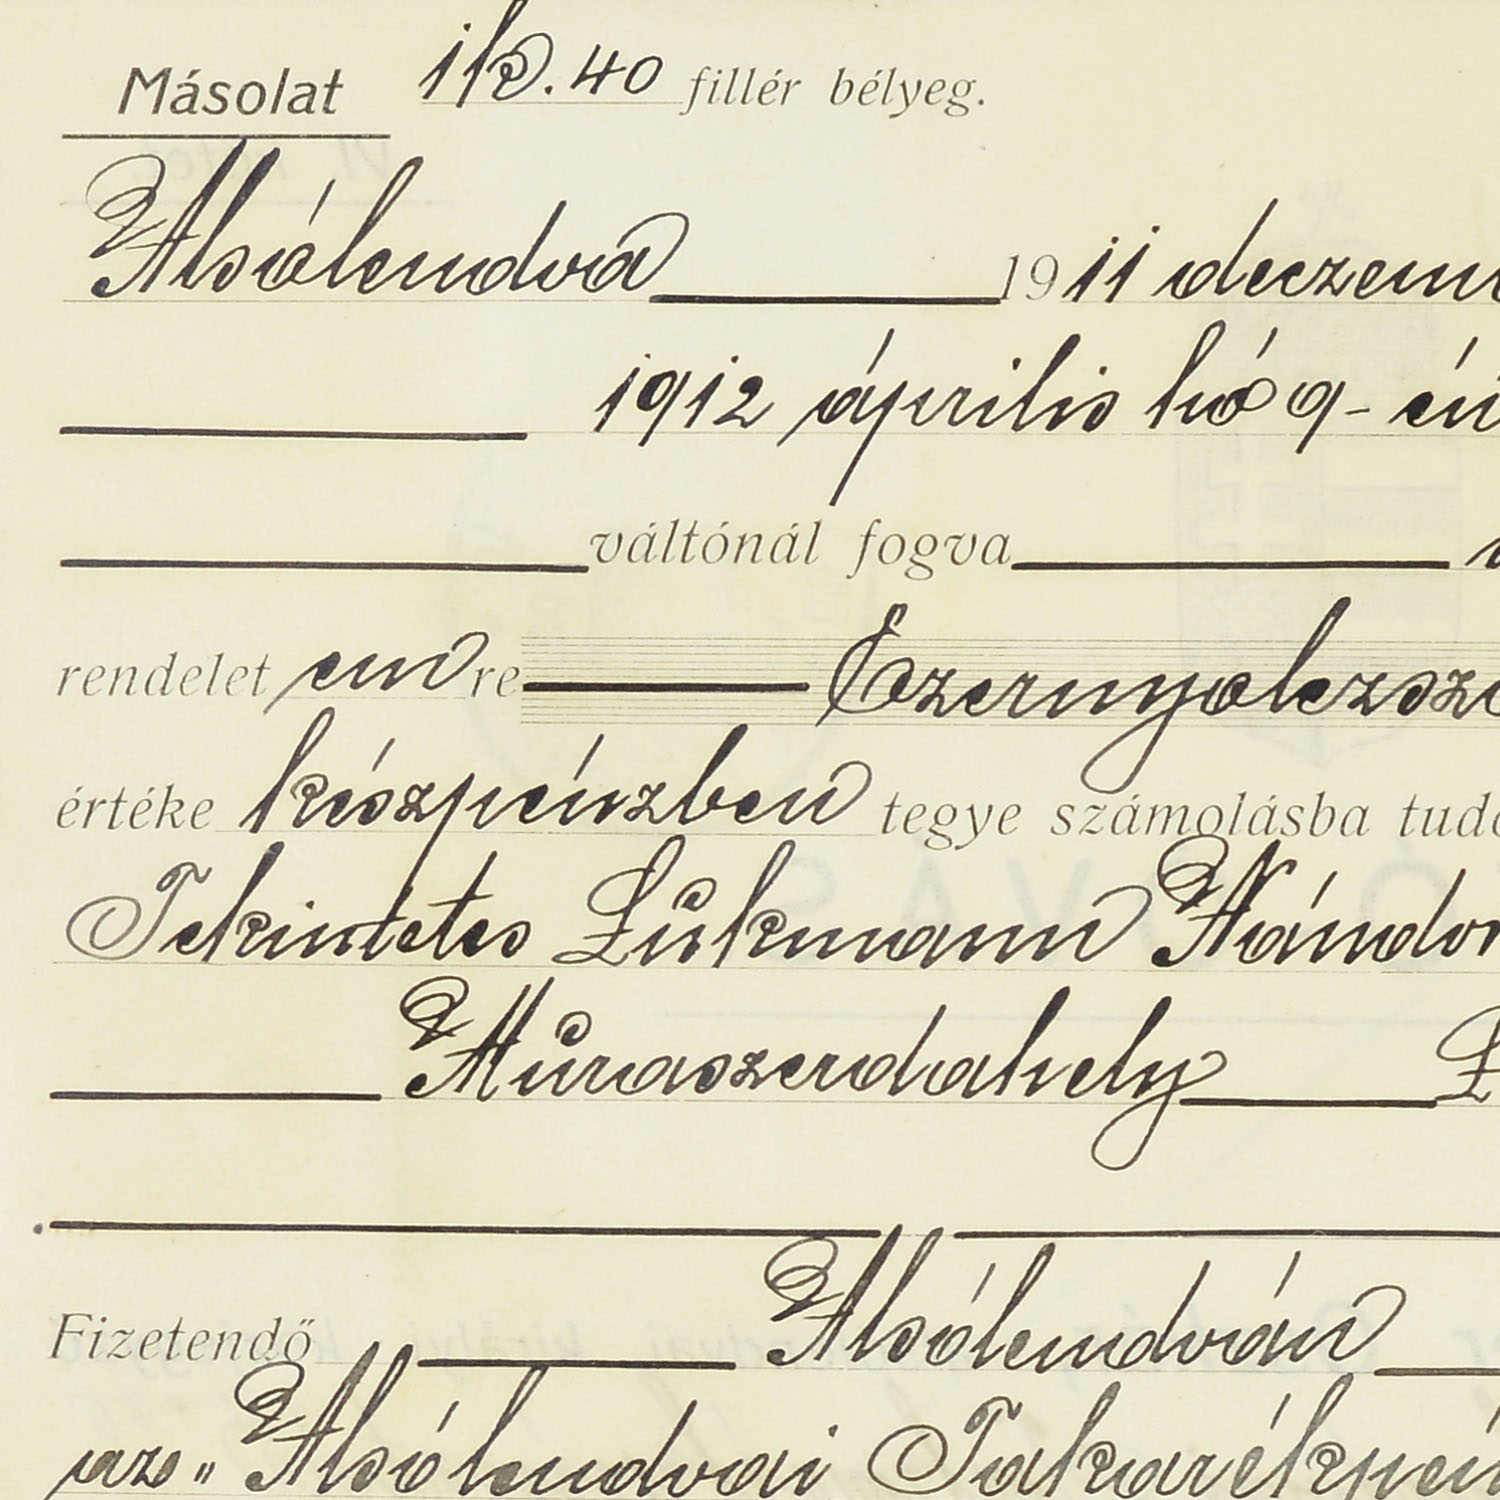 Másolat 1 kor. 40 fillér bélyeg.
Alsólendva 1911 deczem
1912 április hó 9-én
váltónál fogva
rendelet em re Ezernyolczsz
értéke készpénzben tegye számolásba tud
Tekintetes Lukmann Nándor
Muraszerdahely
Fizetendő Alsólendván
az „Alsólendvai Takarékpén